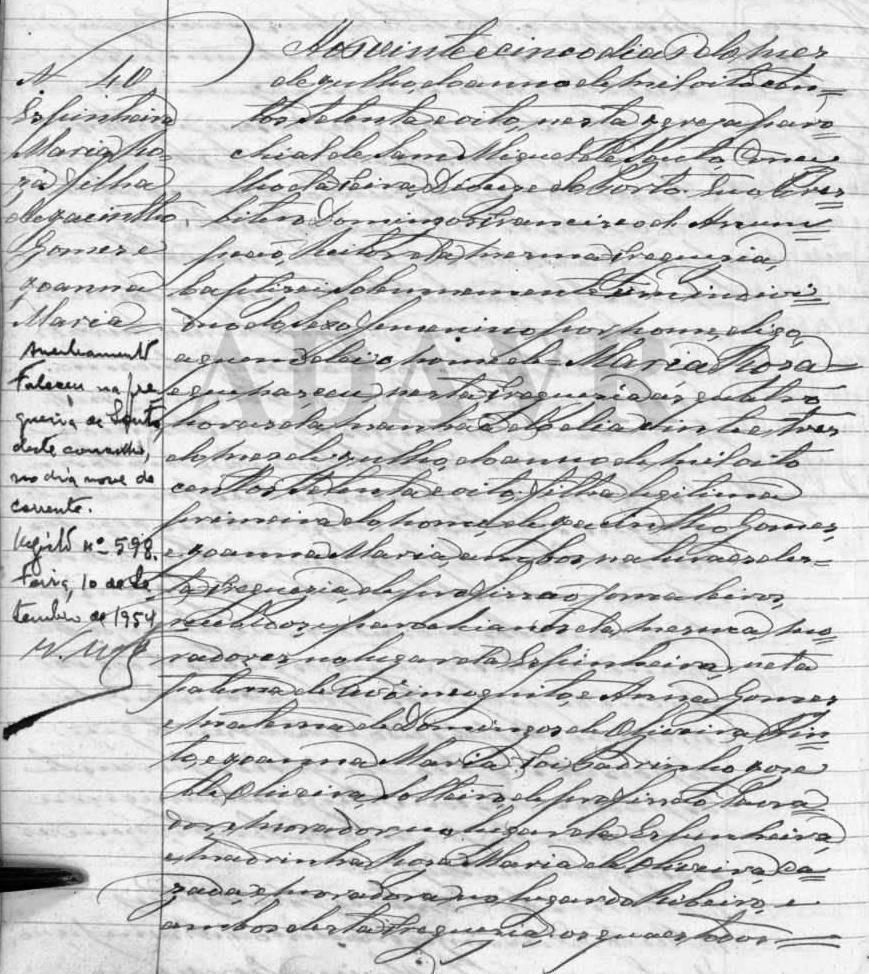 Nº 40
Espinheira
Maria Ro-
za filha
de Jacintho
Gomes e
Joanna
Maria
Averbamento
Faleceu na fre-
guesia de Souto,
deste concelho,
no dia nove do
corrente.
Registo nº 598.
Feira, 10 de Se-
tembro de 1954
Aos vinte e cinco dias do mez
de Julho, do anno de mil oito cen-
tos setenta e oito, nesta Egreja paro-
chial de Sam Miguel de Souto, Conce-
lho da Feira, Dioceze do Porto. Eu o Pres-
bitero Domingos Francisco d'Annun-
ciação, Reitor da mesma freguezia,
baptizei solemnemente um indivi-
duo do sexo femenino por nome, digo,
a quem dei o nome de = Maria Roza =
e que nasceu nesta freguezia ás quatro
horas da manhã do dia vinte e tres
do mez de Julho, do anno de mil oito
centos setenta e oito, filha legitima
primeira do nome, de Jacintho Gomes,
e Joanna Maria, ambos naturaes des-
ta freguezia, de profissão jornaleiros,
recebidos, e parochianos da mesma, mo-
radores no lugar da Espinheira, neta
paterna de Avô incognito, e Anna Gomes
e materna de Domingos de Oliveira Pin-
to, e Joanna Maria. Foi Padrinho Jose
de Oliveira, solteiro, de profissão Lavra-
dor, morador no lugar da Espinheira,
e madrinha Roza Maria de Oliveira, ca-
zada, e moradora no lugar do Ribeiro, e
ambos desta freguezia, os quaes todos =
ADAVR